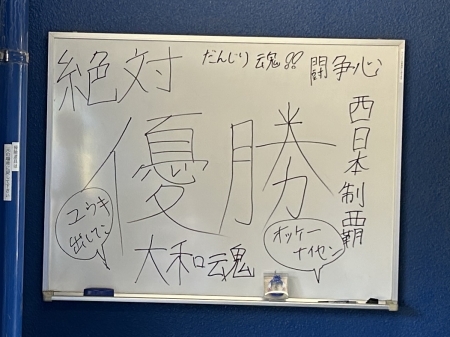 絶対
だんじり魂!!
闘争心
優勝
西日本制覇
ユウキ
出してこ
大和魂
オッケー
ナイセン